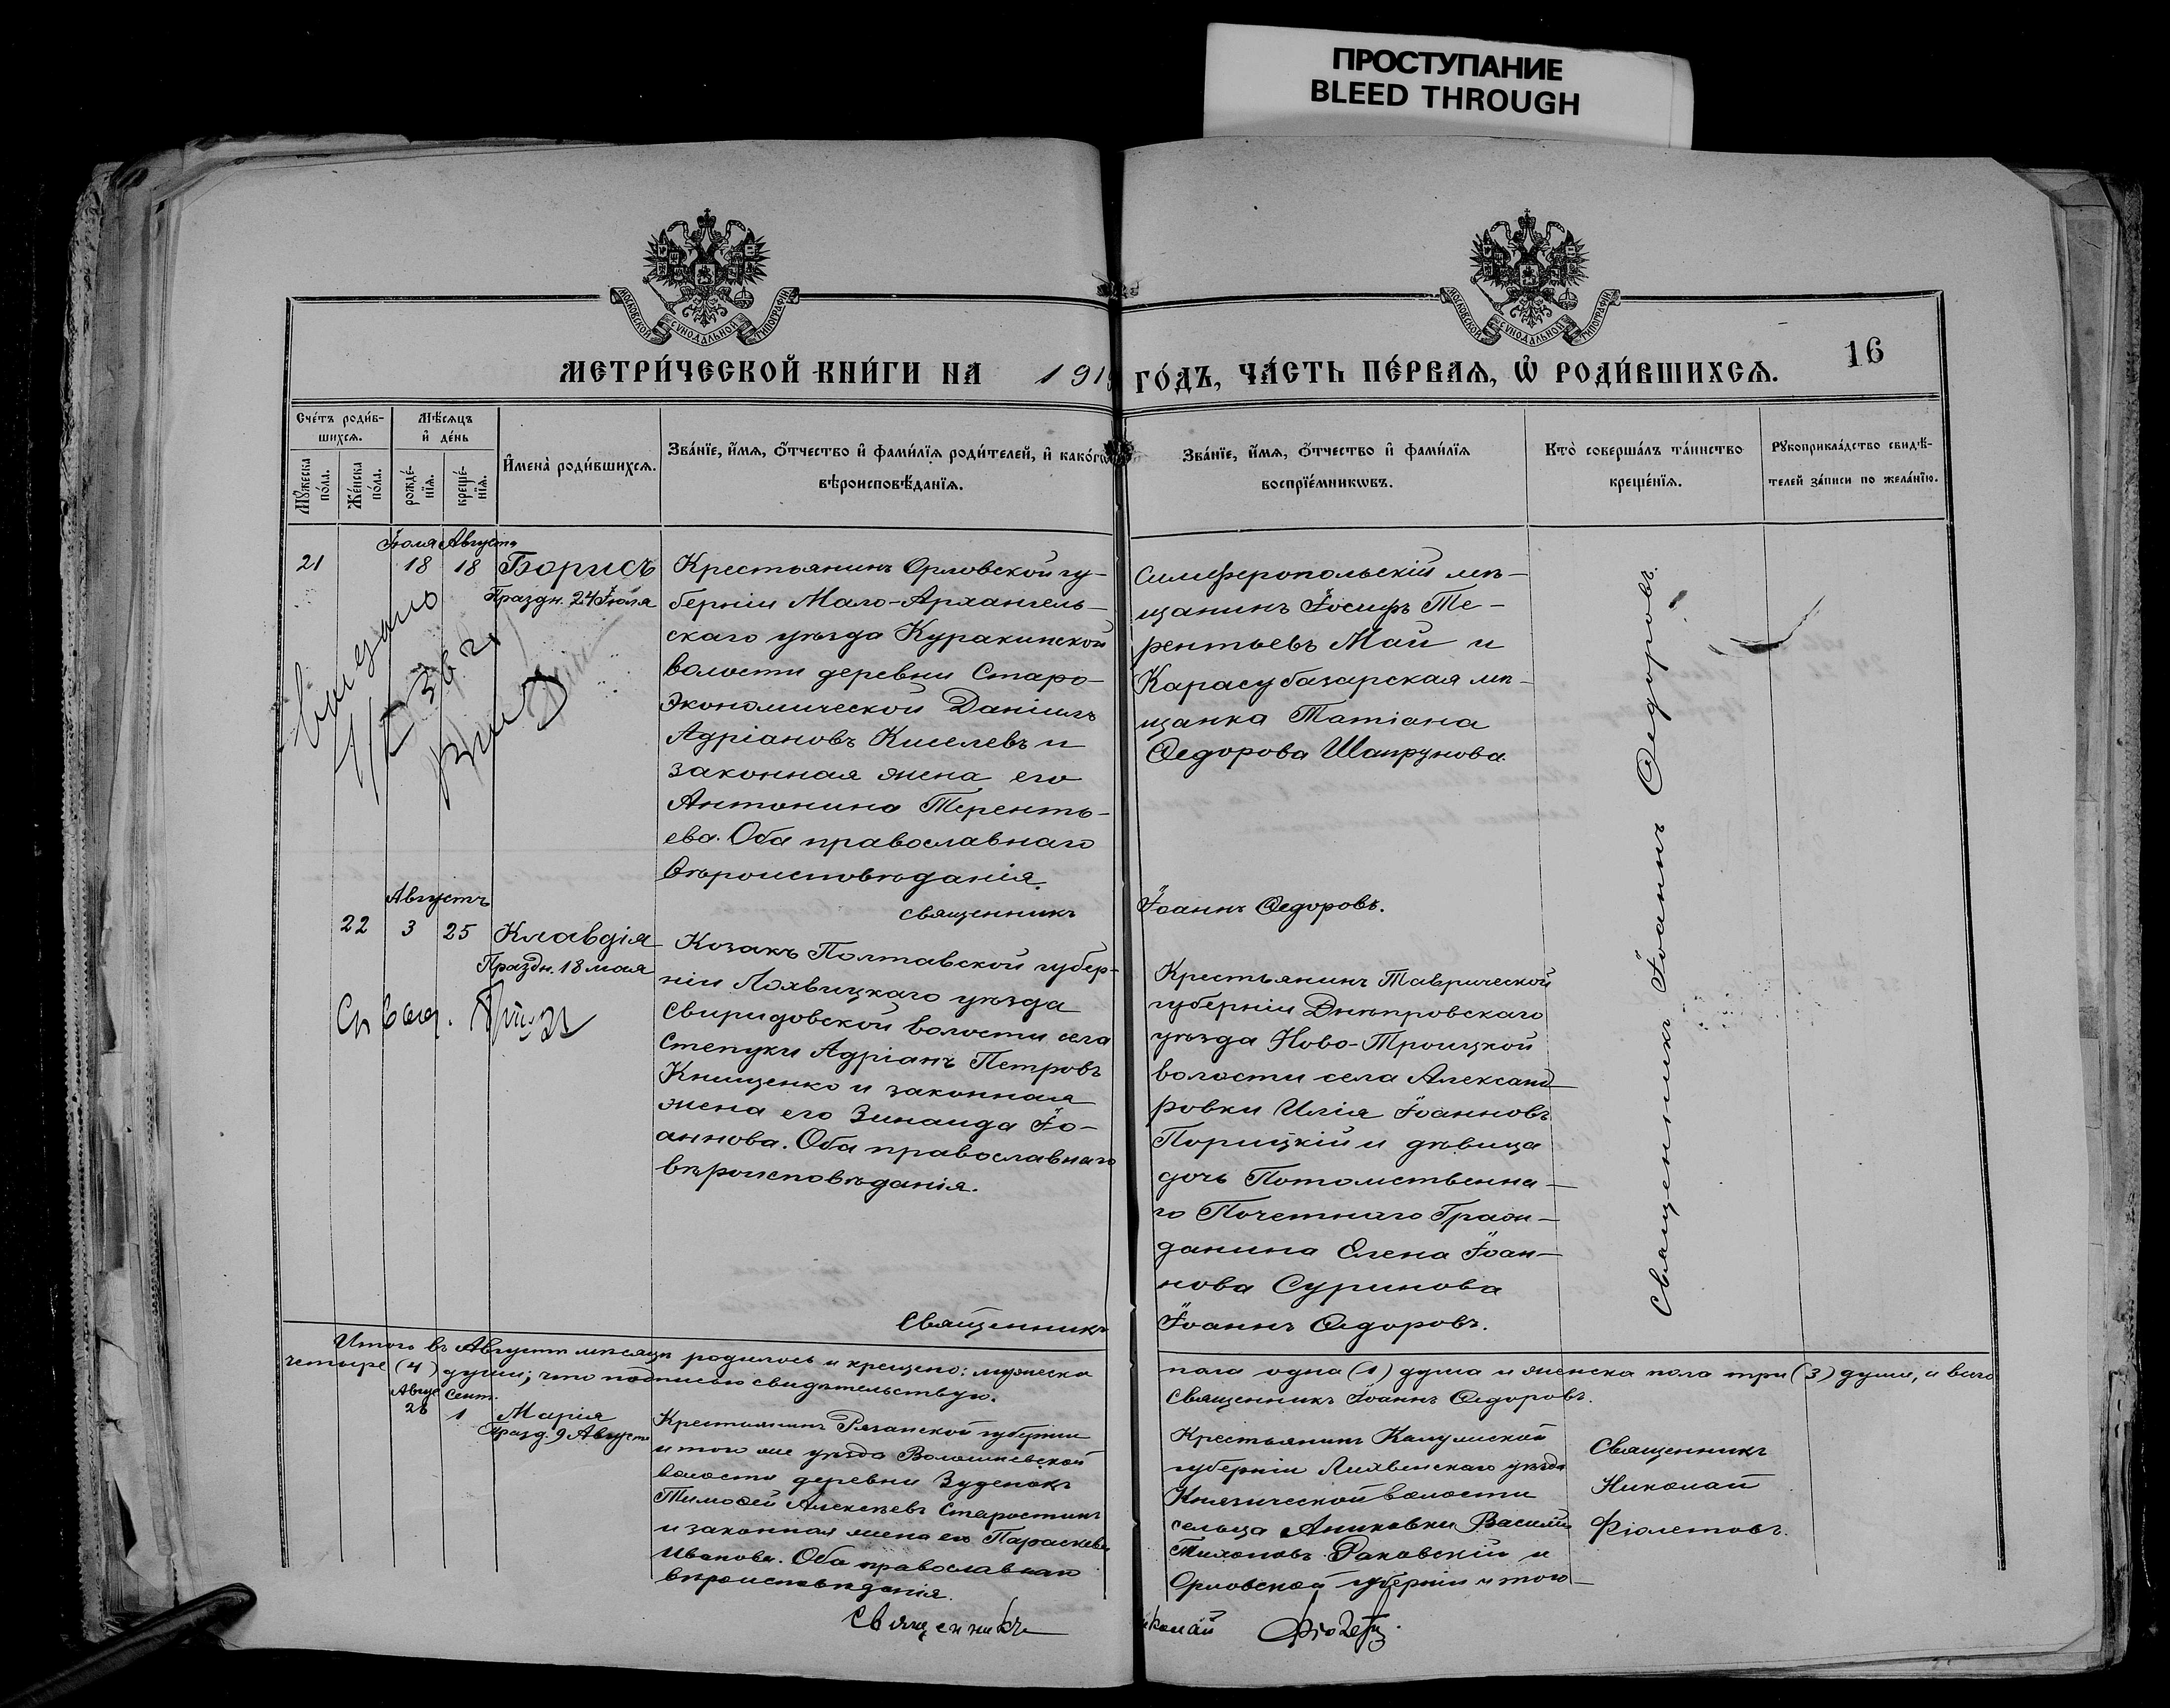 ПРОСТУПАНИЕ
BLEED THROUGH
МОСКОВСКОЙ СѴНОДАЛЬНОЙ ТИПОГРАФІИ
МОСКОВСКОЙ СѴНОДАЛЬНОЙ ТИПОГРАФІИ
МЕТРИ́ЧЕСКОЙ КНИ́ГИ НА 191
ГО́ДЪ, ЧА́СТЬ ПЕ́РВАЯ, Ѡ҆ РОДИ́ВШИХСЯ.
16
Сче́тъ роди́в-
шихся.
Мѣ́сяцъ
и҆ де́нь
Мꙋ́жеска по́ла.
Же́нска по́ла.
рожде́-
нїя.
креще́-
нїя.
И҆мена̀ роди́вшихся.
Зва́нїе, и҆́мя, ѻ҆́тчество и҆ фами́лїя роди́телей, и҆ како́гѡ
вѣроисповѣ́данїя.
Зва́нїе, и҆́мя, ѻ҆́тчество и҆ фами́лїя
воспрїе́мникѡвъ.
Кто̀ соверша́лъ та́инство
креще́нїя.
Рꙋкоприкла́дство свидѣ́-
телей за́писи по жела́нїю.
Іюля Августа
21 18 18 Борисъ
Праздн. 24 Іюля
Крестьянинъ Орловской гу-
берніи Мало-Архангель-
скаго уѣзда Куракинской
волости деревни Старо-
Экономической Даніилъ
Адріановъ Киселевъ и
законная жена его
Антонина Теренть-
ева. Оба православнаго
вѣроисповѣданія.
Симферопольскій мѣ-
щанинъ Іосифъ Те-
рентьевъ Май и
Карасубазарская мѣ-
щанка Татіана
Ѳедорова Шапрунова
Священникъ Іоаннъ Ѳедоровъ.
священникъ Іоаннъ Ѳедоровъ.
Августъ
22 3 25 Клавдія
Праздн. 18 мая
Козакъ Полтавской губер-
ніи Лохвицкаго уѣзда
Свиридовской волости села
Степуки Адріанъ Петровъ
Книщенко и законная
жена его Зинаида Іо-
аннова. Оба православнаго
вѣроисповѣданія.
Крестьянинъ Таврической
губерніи Днѣпровскаго
уѣзда Ново-Троицкой
волости села Александ
ровки Илія Іоанновъ
Порицкій и дѣвица
дочь Потомственна-
го Почетнаго Граж-
данина Елена Іоан-
нова Суринова
Священникъ Іоаннъ Ѳедоровъ.
Итого въ Августѣ мѣсяцѣ родилось и крещено: мужеска пола одна (1) душа и женска пола три (3) души, а всего
четыре (4) души; что подписью свидѣтельствую. Священникъ Іоаннъ Ѳедоровъ.
Авгус Сент.
28 1 Марія
Празд. 9 Августа
Крестьянинъ Рязанской губерніи
и того же уѣзда
волости деревни
Тимоѳей Алексѣевъ Старостинъ
и законная жена его Параскева
Иванова. Оба православнаго
вѣроисповѣданія.
Крестьянинъ Калужской
губерніи Лихвинскаго уѣзда
волости
сельца Аниковки Василій
Тихоновъ Раковскій и
Орловской губерніи и того-
Священникъ
Николай
Фіолетовъ.
Священникъ